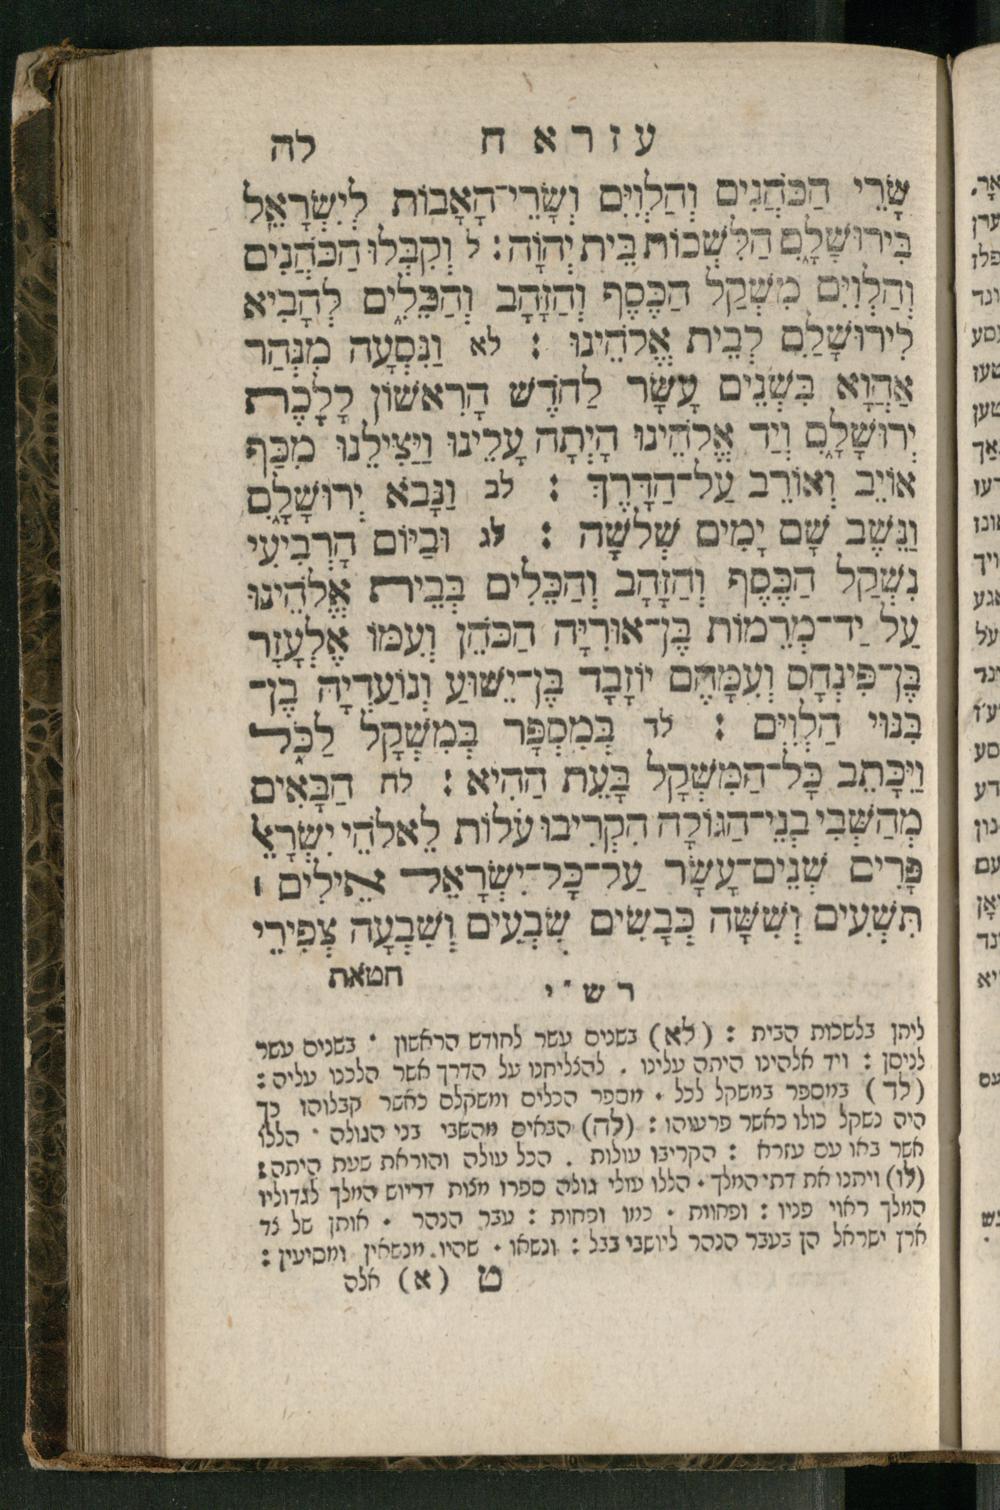 עזרא ח לה
שָׂרֵי הַכֹּהֲנִים וְהַלְוִיִּם וְשָׂרֵי־הָאָבוֹת לְיִשְׂרָאֵל
בִּירוּשָׁלָ͏ִם הַלִּשְׁכוֹת בֵּית יְהוָֹה: ל וְקִבְּלוּ הַכֹּהֲנִים
וְהַלְוִיִּם מִשְׁקַל הַכֶּסֶף וְהַזָּהָב וְהַכֵּלִים לְהָבִיא
לִירוּשָׁלַ͏ִם לְבֵית אֱלֹהֵינוּ : לא וַנִּסְעָה מִנְּהַר
אַהֲוָא בִּשְׁנֵים עָשָׂר לַחֹדֶשׁ הָרִאשׁוֹן לָלֶכֶת
יְרוּשָׁלָ͏ִם וְיַד אֱלֹהֵינוּ הָיְתָה עָלֵינוּ וַיַּצִּילֵנוּ מִכַּף
אוֹיֵב וְאוֹרֵב עַל־הַדָּרֶךְ : לב וַנָּבֹא יְרוּשָׁלָ͏ִם
וַנֵּשֶׁב שָׁם יָמִים שְׁלֹשָׁה : לג וּבַיּוֹם הָרְבִיעִי
נִשְׁקַל הַכֶּסֶף וְהַזָּהָב וְהַכֵּלִים בְּבֵית אֱלֹהֵינוּ
עַל יַד־מְרֵמוֹת בֶּן־אוּרִיָּה הַכֹּהֵן וְעִמּוֹ אֶלְעָזָר
בֶּן־פִּינְחָס וְעִמָּהֶם יוֹזָבָד בֶּן־יֵשׁוּעַ וְנוֹעַדְיָה בֶן־
בִּנּוּי הַלְוִיִּם : לד בְּמִסְפָּר בְּמִשְׁקָל לַכֹּל
וַיִּכָּתֵב כָּל־הַמִּשְׁקָל בָּעֵת הַהִיא : לה הַבָּאִים
מֵהַשְּׁבִי בְנֵי־הַגּוֹלָה הִקְרִיבוּ עֹלוֹת לֵאלֹהֵי יִשְׂרָאֵל
פָּרִים שְׁנֵים־עָשָׂר עַל־כָּל־יִשְׂרָאֵל אֵילִים ׀
תִּשְׁעִים וְשִׁשָּׁה כְּבָשִׂים שִׁבְעִים וְשִׁבְעָה צְפִירֵי
חטאת
רש"י
ליתן בלשכות הבית : (לא) בשנים עשר לחודש הראשון · בשנים עשר
לניסן : ויד אלהינו היתה עלינו . להצליחנו על הדרך אשר הלכנו עליה :
(לד) במספר במשקל לכל · מספר הכלים ומשקלם כאשר קבלוהו כך
היה נשקל כולו כאשר פרעוהו : (לה) הבאים מהשבי בני הגולה · הללו
אשר באו עם עזרא : הקריבו עולות . הכל עולה והוראת שעת היתה :
(לו) ויתנו את דתי המלך · הללו עולי גולה ספרו מצות דריוש המלך לגדוליו
המלך ראוי פניו : ופחוות · כמו ופחות : עבר הנהר · אותן של צד
ארץ ישראל הן בעבר הנהר ליושבי בבל : ונשאו · שהיו מנשאין ומסיעין :
ט (א) אלה